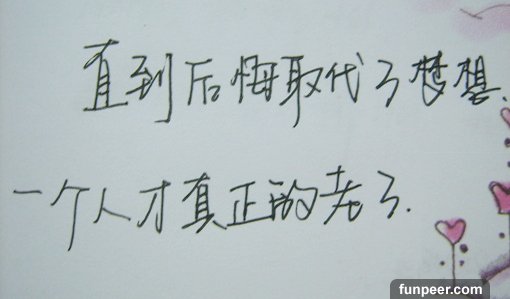 直到后悔取代了梦想.
一个人才真正的老了.
funpeer.com